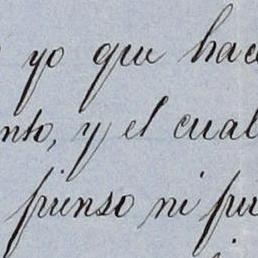 yo que hace
nto, y el cual
pienso ni pu